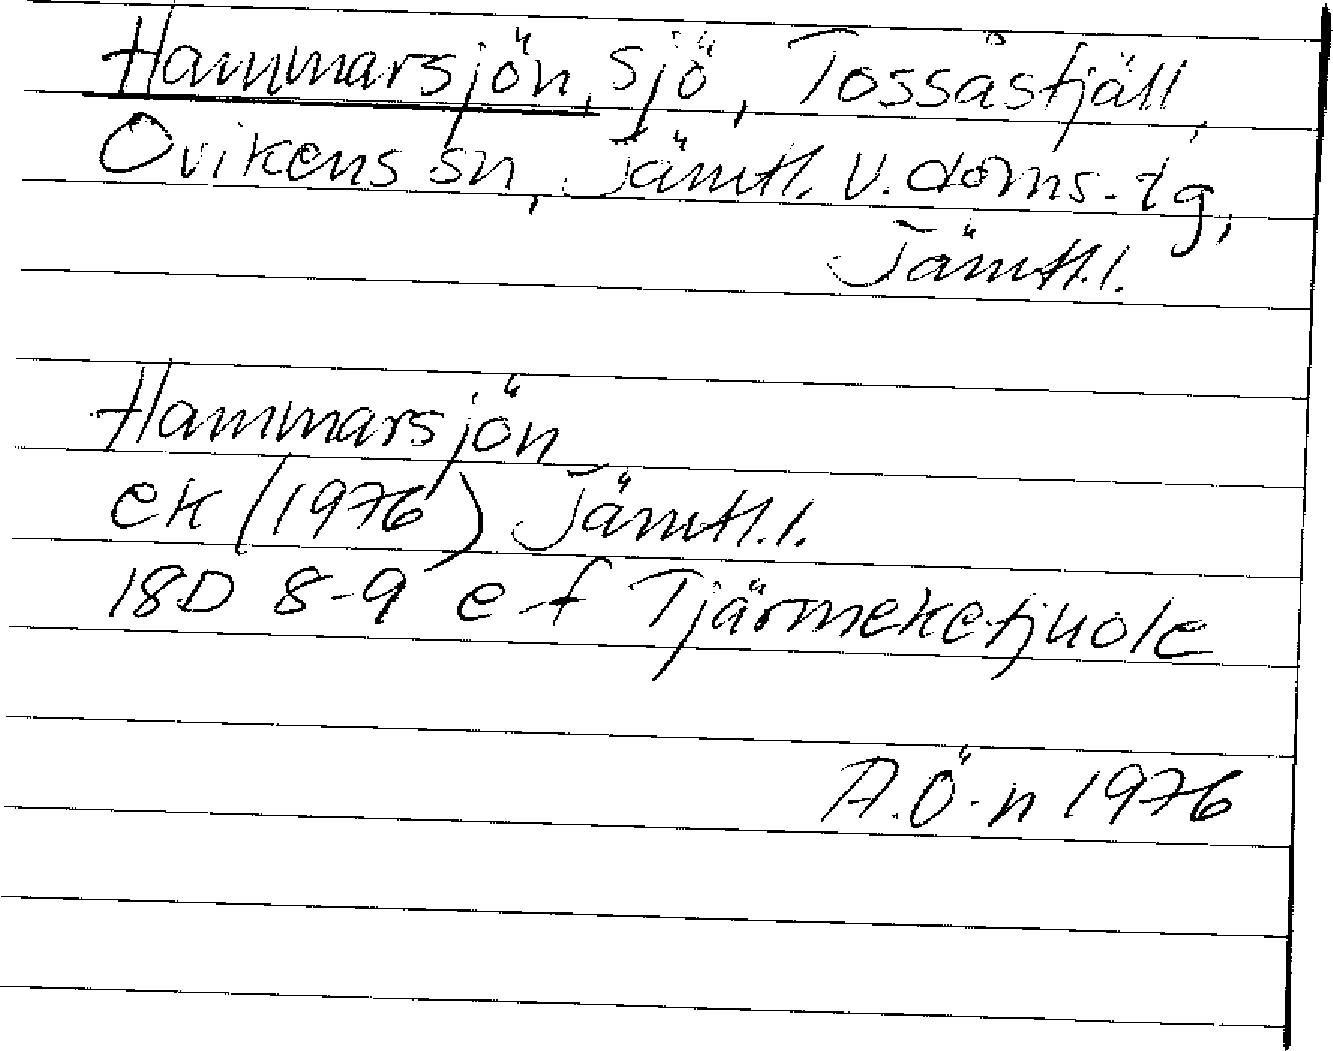 Hammarsjön, sjö, Tossåsfjäll,
Ovikens sn, Jämtl. v. doms. tg,
Jämtl. l.
Hammarsjön
ek (1976) Jämtl. l.
18D 8-9 e-f Tjärmeketjuole
A.Ö-n 1976